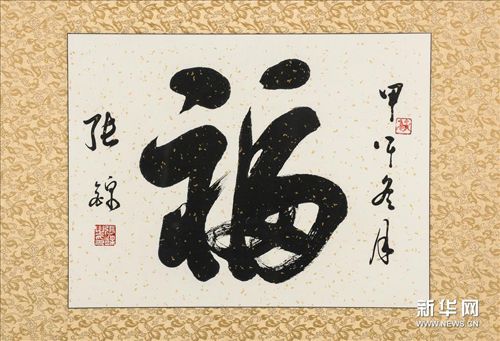 甲午冬月
福
张锦
新华网
WWW.NEWS.CN